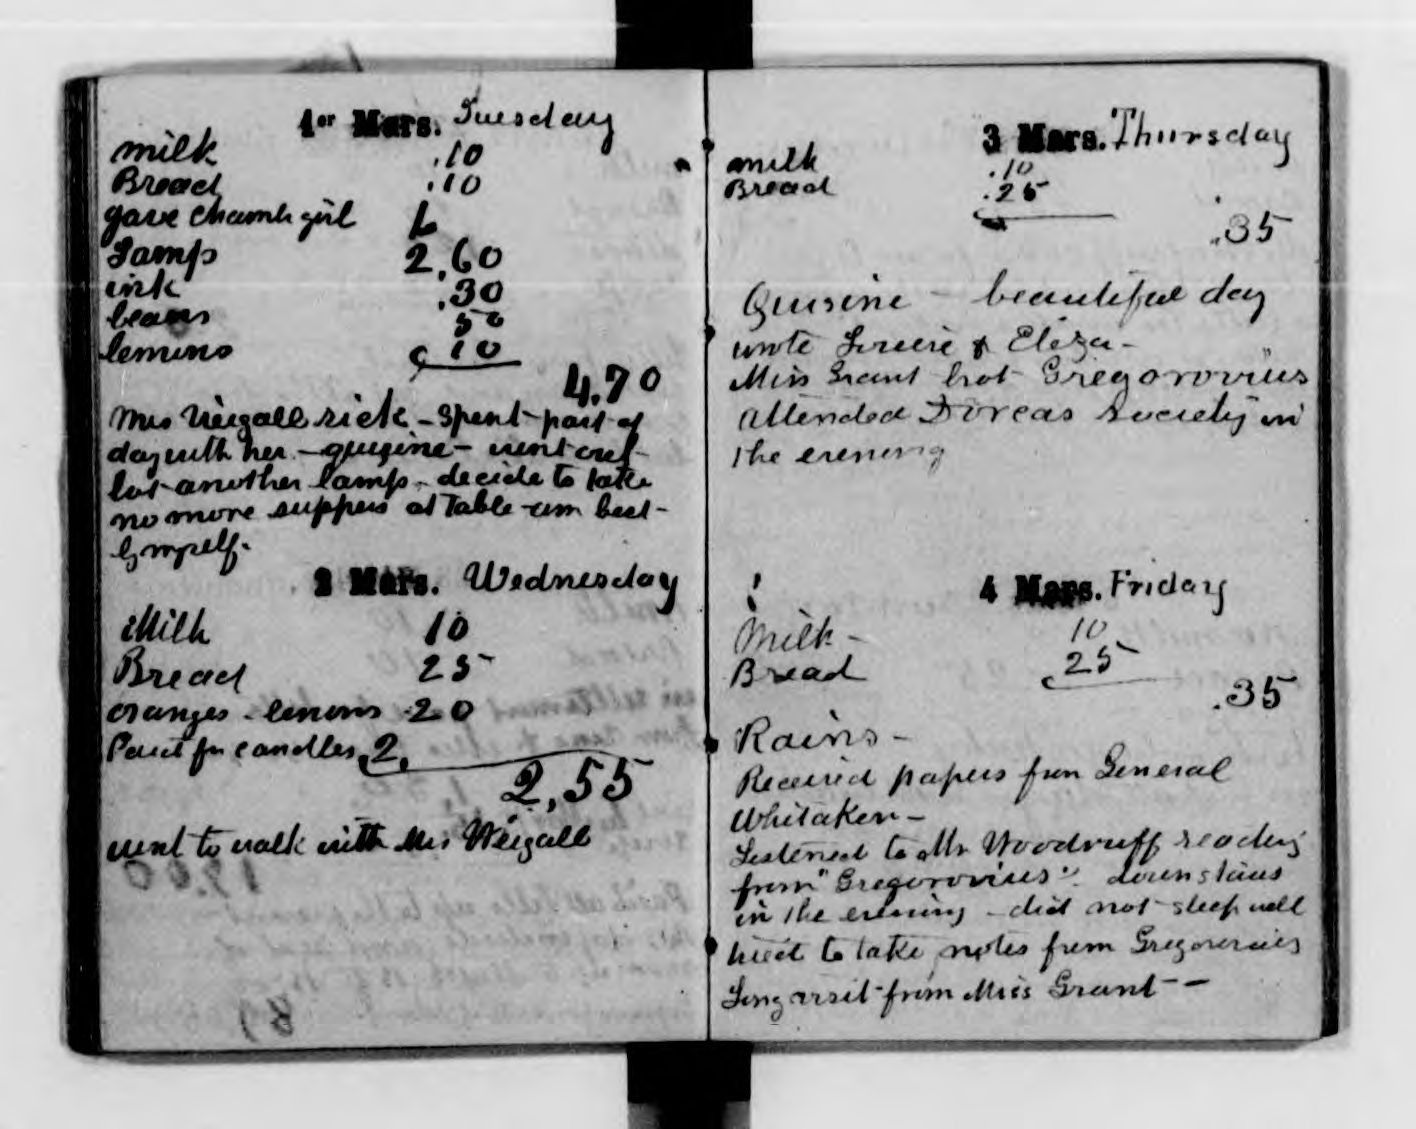 1er Mars. Tuesday
milk .10
Bread .10
gave chamb girl 1
Lamp 2,60
ink .30
beans 50
lemons 10
4,70
Mrs Weigall sick - Spent part of
day with her - quizine - went out
another lamp - decide to take
no more suppers at Table - am best
by myself.
2 Mars. Wednesday
Milk 10
Bread 25
oranges - lemons 20
Paid for candles, 2,
2,55
went to walk with Mrs Weigall
3 Mars. Thursday
milk .10
Bread .25
.35
Quisine - beautiful day
wrote & Eliza -
Miss Grant Gregorovius
Attended Dorcas Society in
the evening
4 Mars. Friday
Milk - 10
Bread 25
.35
Rains -
Received papers from General
Whitaker -
Listened to Mr Woodruff reading
from "Gregorovius" down stairs
in the evening - did not sleep well
tried to take notes from Gregorovius
Long visit from Miss Grant -